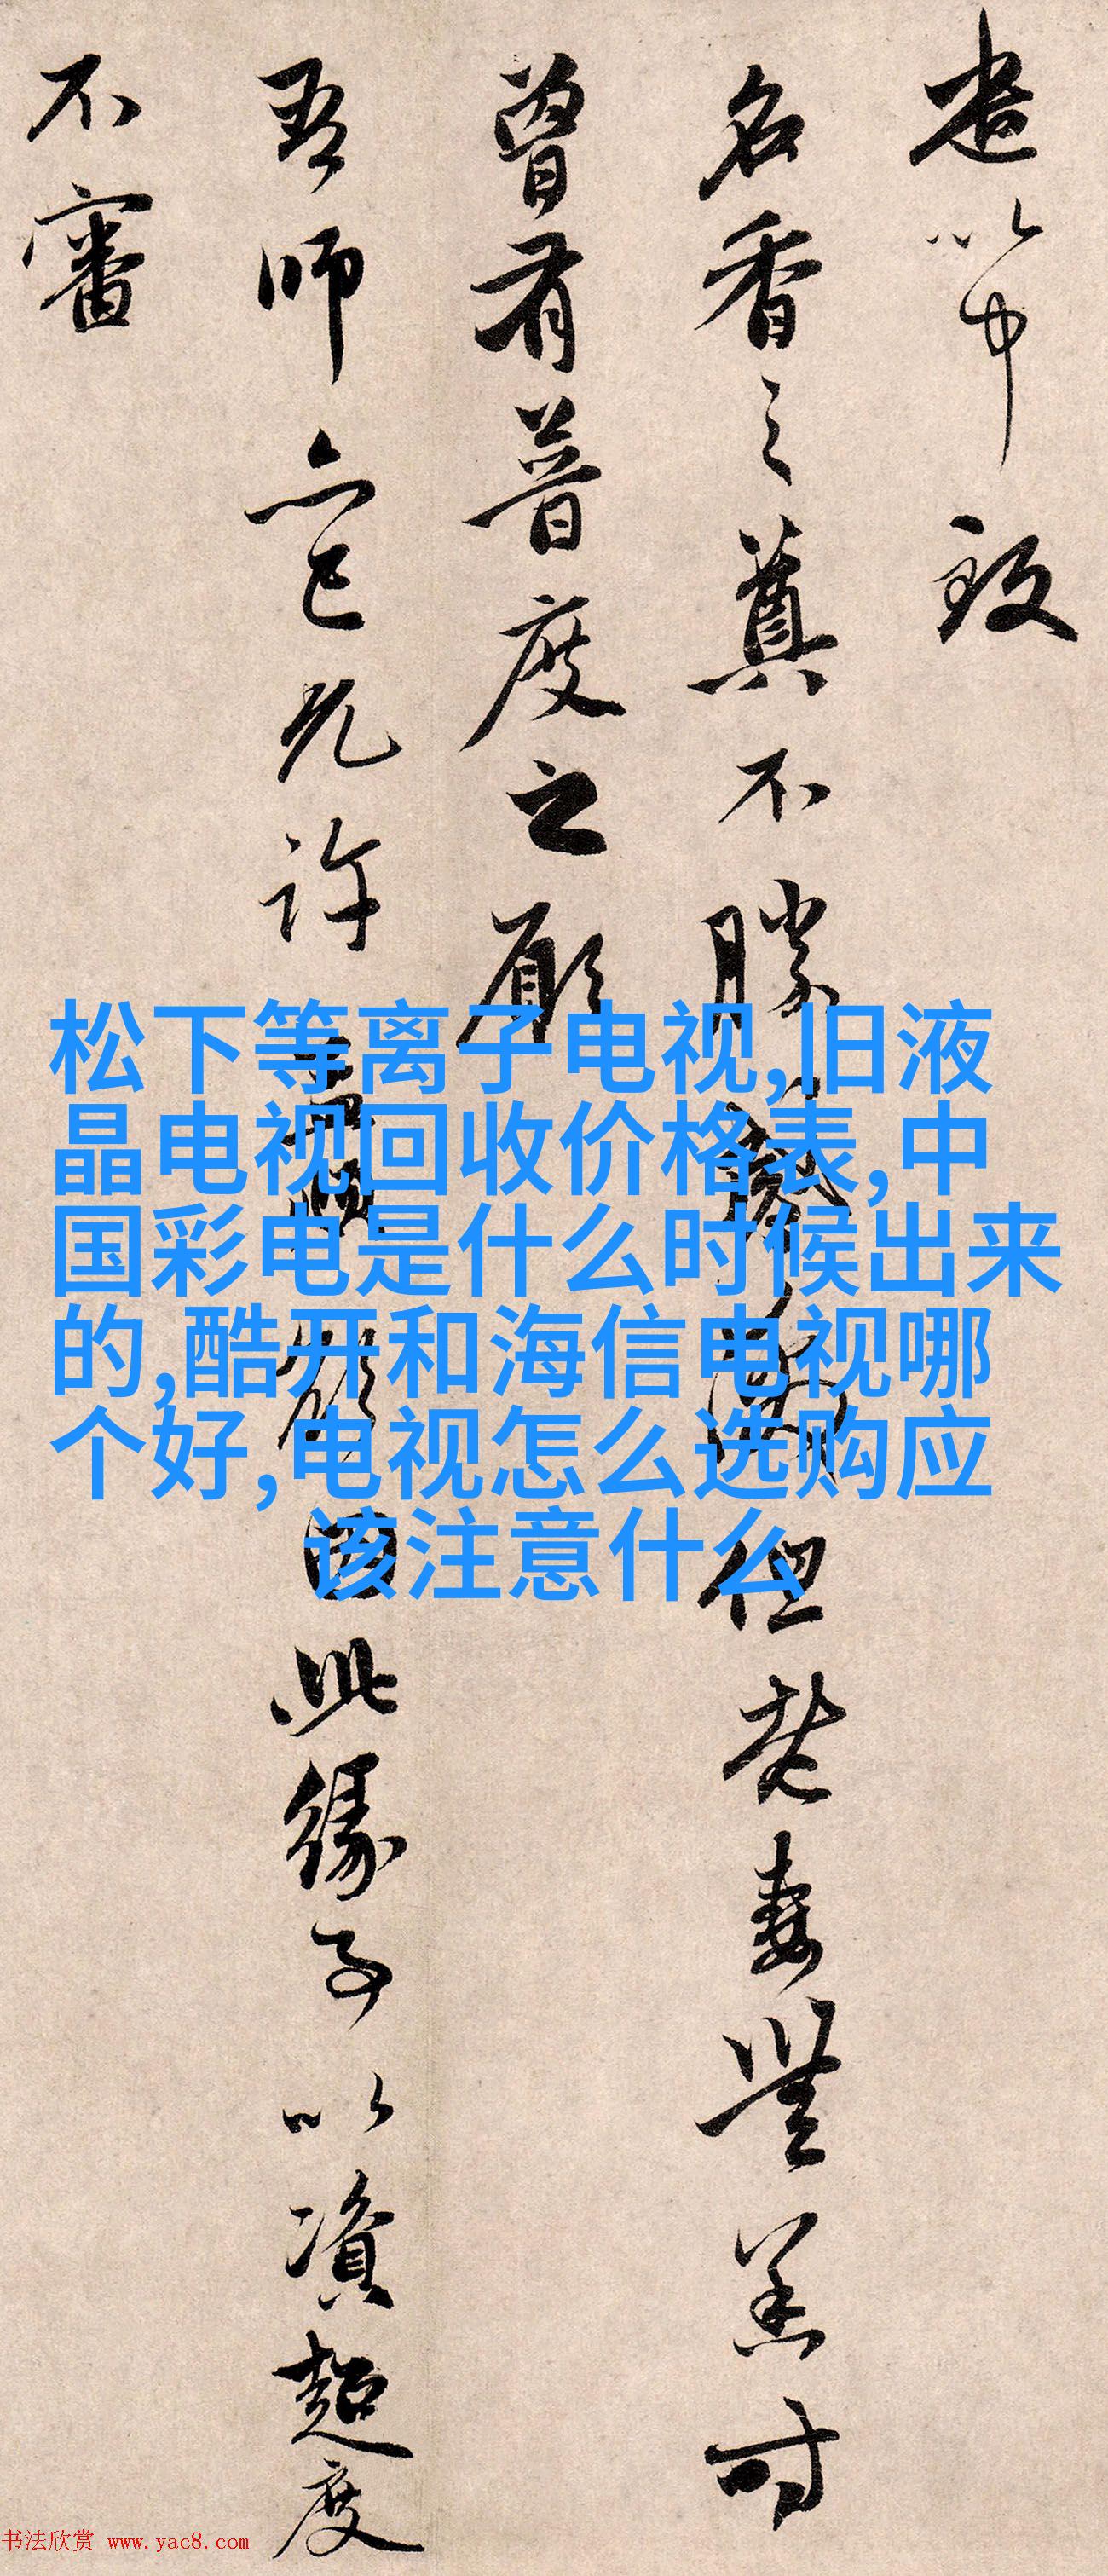 遣此中致
名香之奠不勝
但芜妻無恙時
曾有普度之願
吾師亦已允許
因此緣子以資超度
不審
松下等离子电视,旧液
晶电视回收价格表,中
国彩电是什么时候出来
的,酷开和海信电视哪
个好,电视怎么选购应
该注意什么
书法欣赏 www.yac8.com